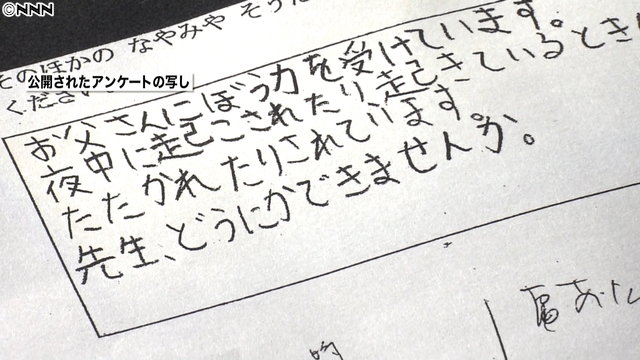 NNN
そのほかの なやみや そうだ
ください
公開されたアンケートの写し
お父さんにぼう力を受けています。
夜中に起こされたり、起きているときに
たたかれたりされています。
先生、どうにかできませんか。